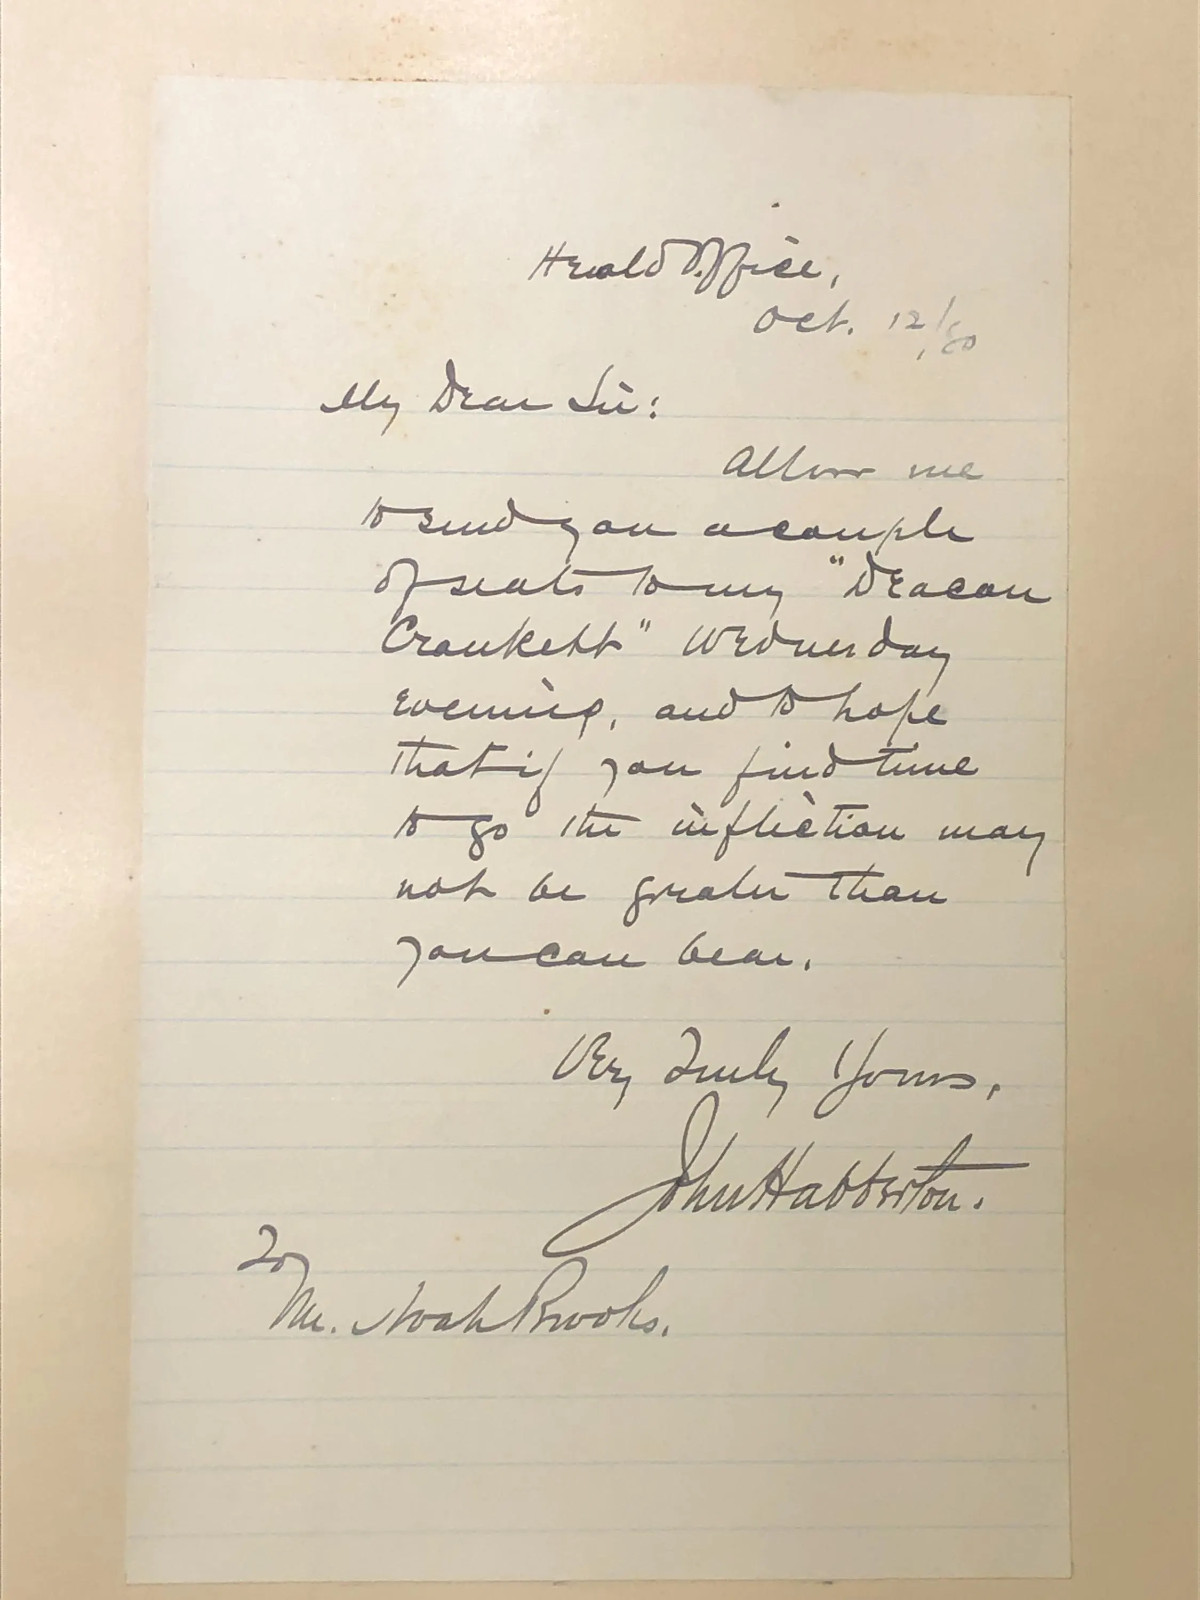 Herald Office,
Oct. 12/80
My Dear Sir:
Allow me
to send you a couple
of seats to my "Deacon
Crankett" Wednesday
evening, and to hope
that if you find time
to go the infliction may
not be greater than
you can bear.
Very Truly Yours,
John Habberton.
To
Mr. Noah Brooks.